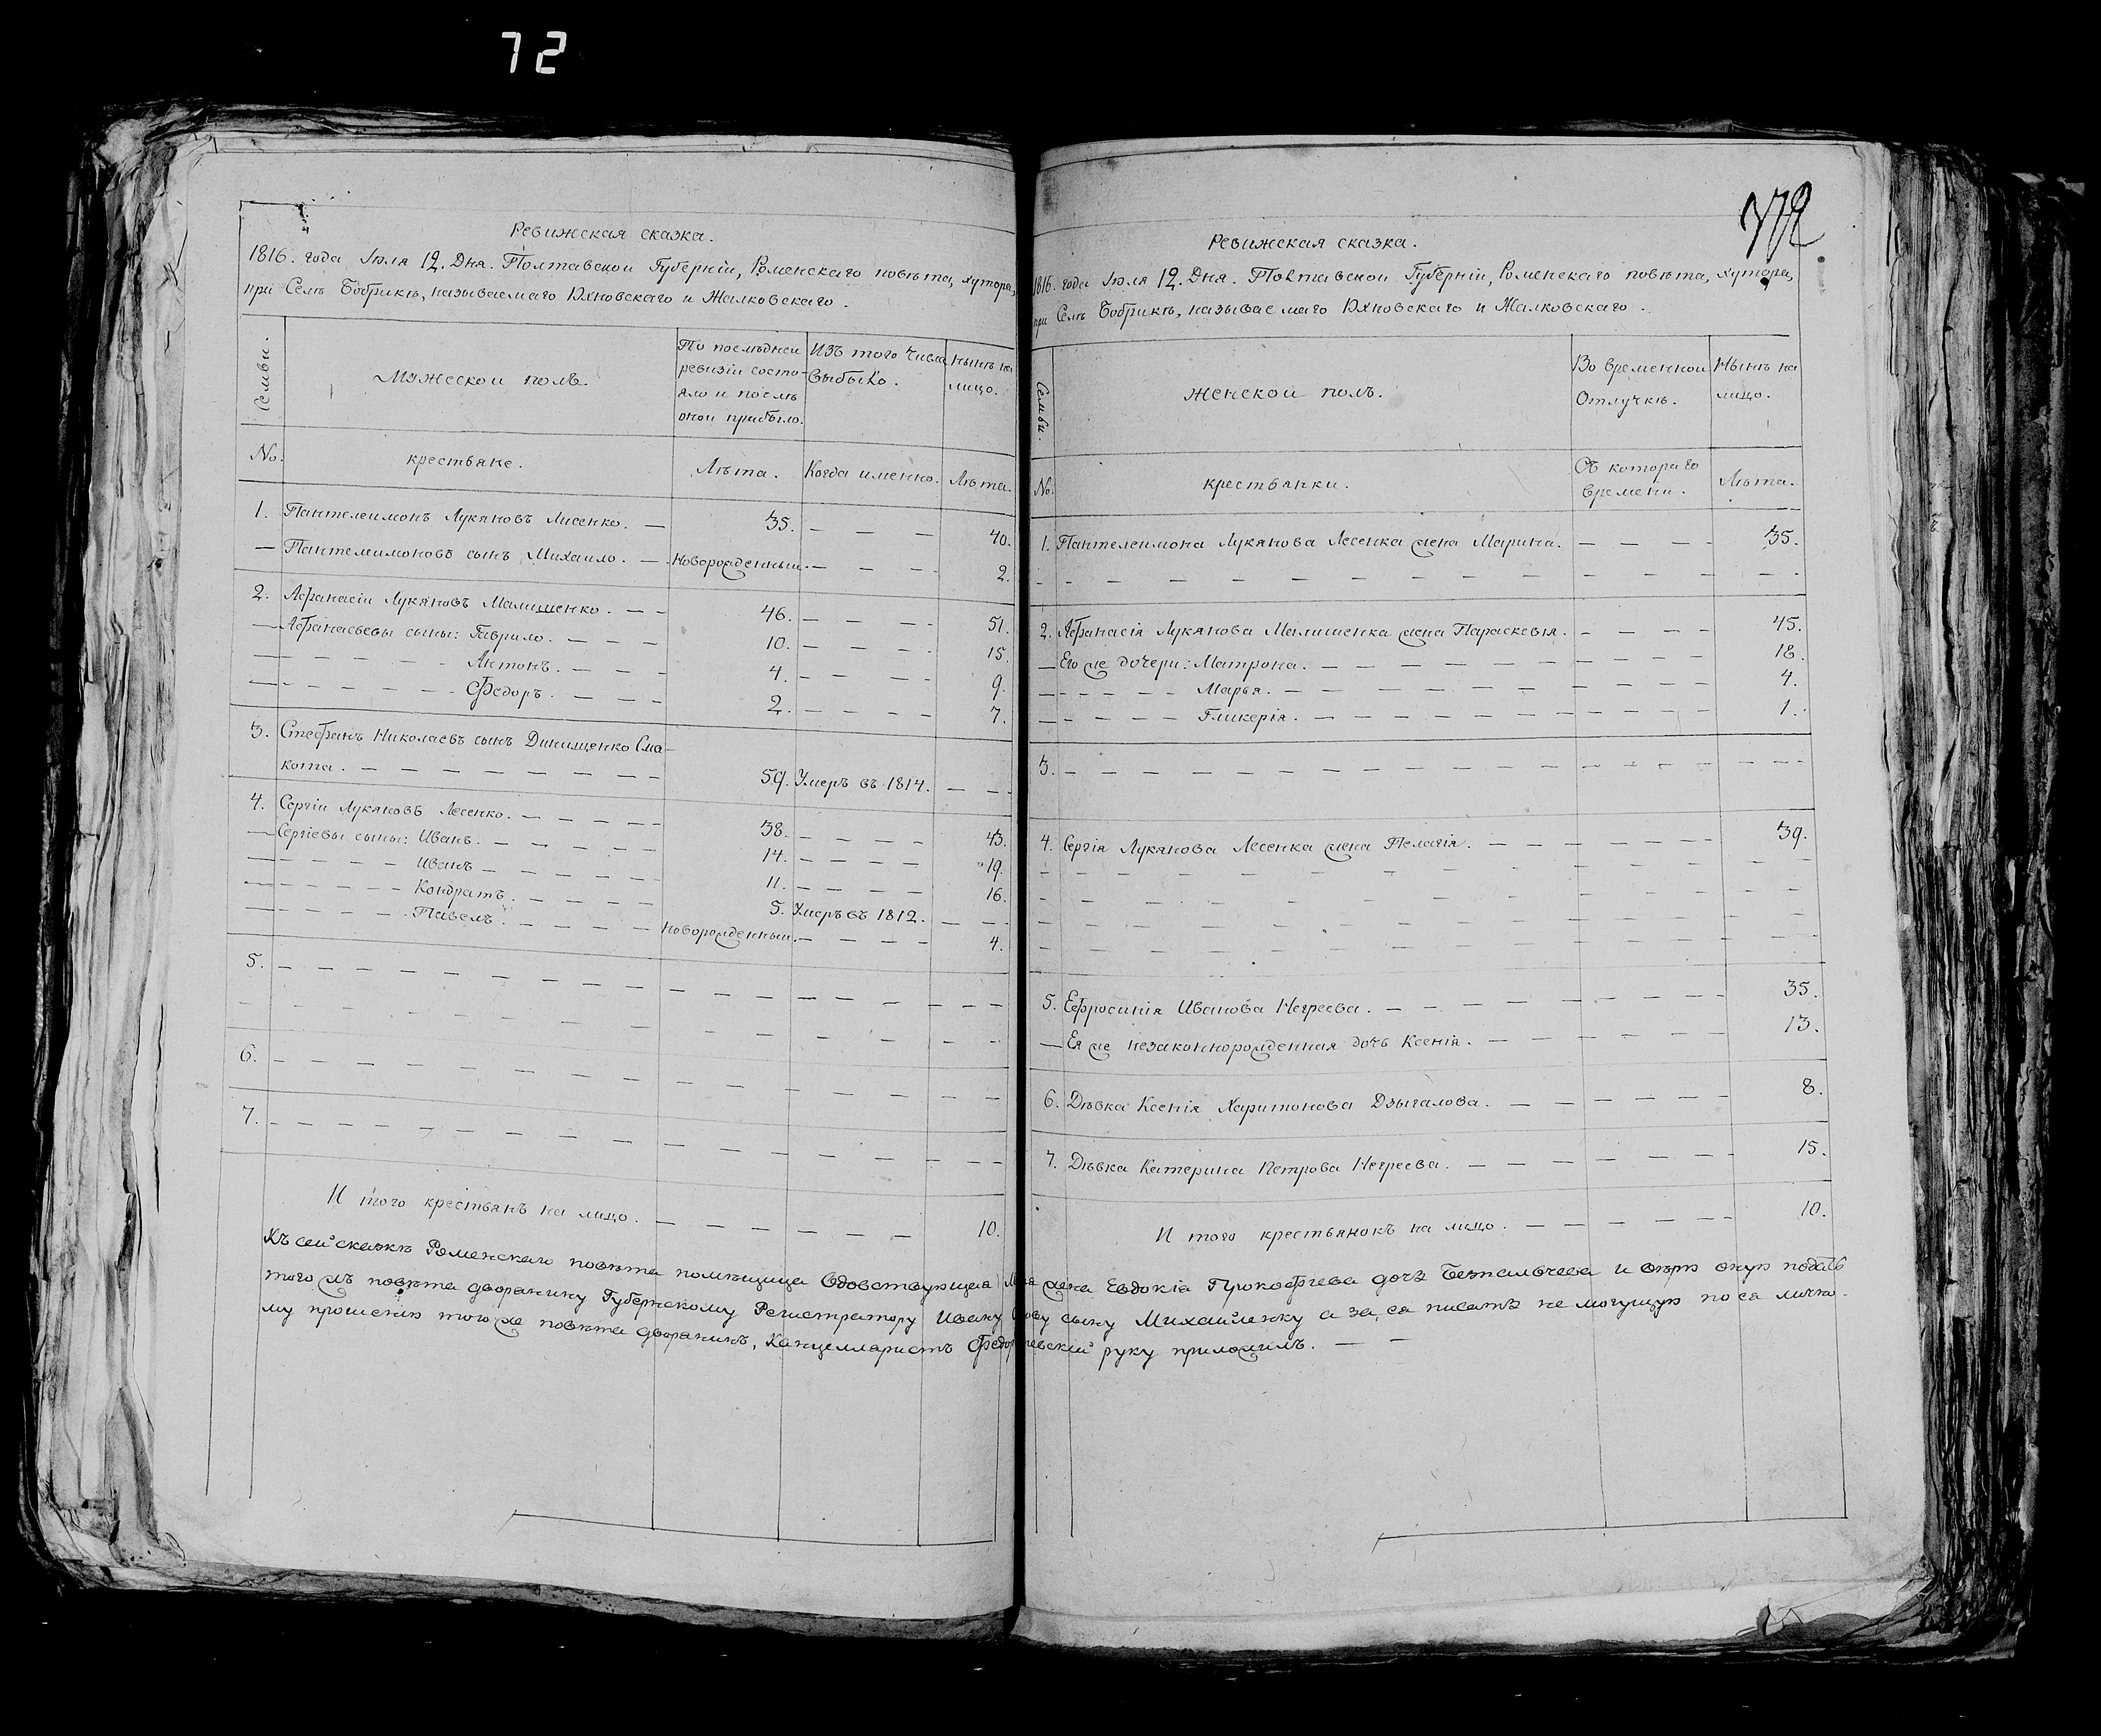 72
Ревижская сказка.
1816. года Іюля 12. Дня. Полтавской Губерніи, Роменскаго повѣта, хутора,
при Селѣ Бобрикѣ, называемаго Юхновскаго и Жалковскаго.
Семьи. Мужеской полъ. По послѣдней ревизіи состояло и послѣ оной прибыло. Изъ того числа выбыло. Нынѣ на лицо.
No. крестьяне. Лѣта. Когда именно. Лѣта.
1. Пантелеимонъ Лукяновъ Лисенко. — 35. — — — 40.
— Пантелимоновъ сынъ Михаило. — Новорожденный. — — — — 2.
2. Афанасіи Лукяновъ Малишенко. — — 46. — — — — 51.
— Афанасьевы сыны: Гаврило. — — — 10. — — — — 15.
— — — — — — Антонъ. — — — 4. — — — — 9.
— — — — — — Федоръ. — — — 2. — — — — 7.
3. Стефанъ Николаевъ сынъ Динищенко Сма-
кота. — — — — — — — — 59. Умеръ въ 1814. — —
4. Сергіи Лукяновъ Лесенко. — — — — — 38. — — — — 43.
— Сергіевы сыны: Иванъ. — — — — — 14. — — — — 19.
— — — — — Иванъ — — — — — 11. — — — — 16.
— — — — — Кондратъ. — — — — 5. Умеръ въ 1812. — —
— — — — — Павелъ. — — — — — Новорожденный. — — — — 4.
5. — — — — — — — — — — — — — — — —
6. — — — — — — — — — — — — — — — —
7. — — — — — — — — — — — — — — — —
И того крестьянъ на лицо. — — — — — — 10.
372
Ревижская сказка.
1816. года Іюля 12. Дня. Полтавской Губерніи, Роменскаго повѣта, хутора,
при Селѣ Бобрикѣ, называемаго Юхновскаго и Жалковскаго.
Семьи. Женской полъ. Во временной Отлучкѣ. Нынѣ на лицо.
No. крестьянки. Съ котораго времени. Лѣта.
1. Пантелеимона Лукянова Лесенка жена Марина. — — — — 35.
— — — — — — — — — — — — — — — —
2. Афанасія Лукянова Малишенка жена Параскевія. — — — — 45.
— Его же дочери: Матрона. — — — — — — — — — 18.
— — — — — — Марья. — — — — — — — — — 4.
— — — — — — Гликерія. — — — — — — — — — 1.
3. — — — — — — — — — — — — — — — —
4. Сергія Лукянова Лесенка жена Пелагія. — — — — — — — 39.
— — — — — — — — — — — — — — — —
5. Ефросинія Иванова Негреева. — — — — — — — — 35.
— Ея же незаконнорожденная дочь Ксенія. — — — — — — 13.
6. Дѣвка Ксенія Харитонова Дзыгалова. — — — — — — 8.
7. Дѣвка Катерина Петрова Негреева. — — — — — — 15.
И того крестьянокъ на лицо. — — — — — — 10.
Къ сей сказкѣ Роменскаго повѣта помѣщица вдовствующая жена Евдокія Прокофіева дочь Безпальчева и вѣрю оную подать
того жъ повѣта дворянину Губернскому Регистратору Ивану сыну Михайленку а за ея писать не могущую по ея лично-
му прошенію того же повѣта дворянинъ, Канцеляристъ руку приложилъ. — —